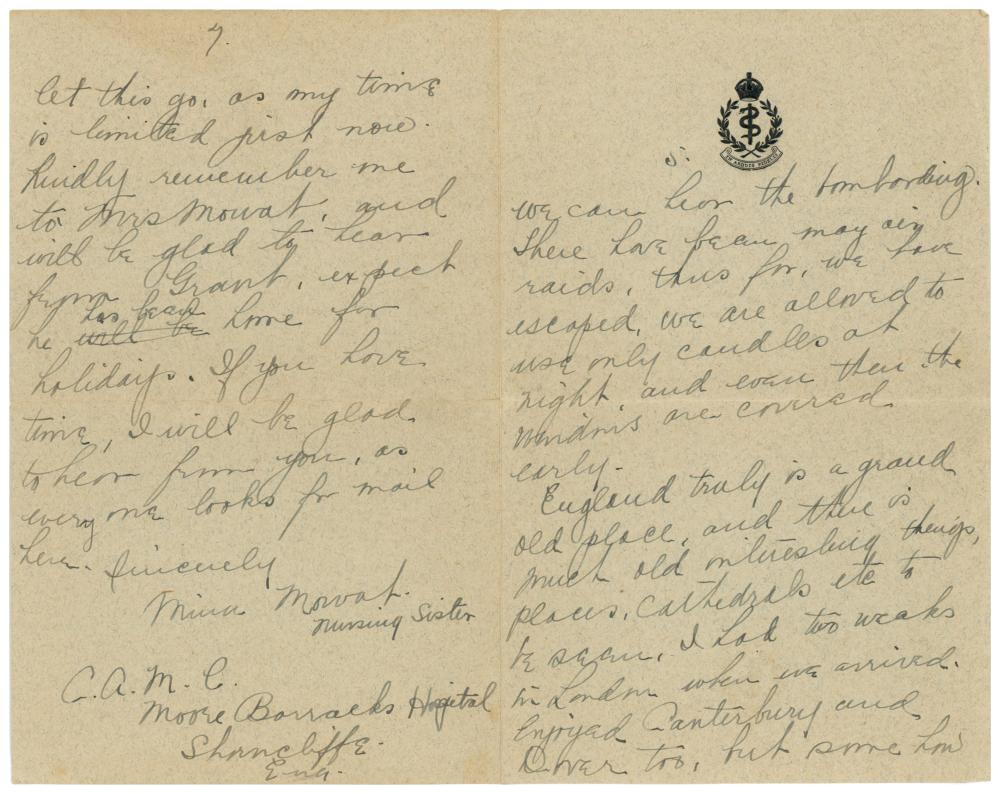 7.
let this go, as my time
is limited just now.
Kindly remember me
to Mrs Mowat, and
will be glad to hear
from Grant, expect
has been
he will be home for
holidays. If you have
time, I will be glad
to hear from you, as
every one looks for mail
here. Sincerely
Mina Mowat.
Nursing Sister
C.A.M.C.
Moore Barracks Hospital
Shorncliffe.
Eng.
5.
IN ARDUIS FIDELIS
we can hear the bombarding.
There have been may air
raids, thus far, we have
escaped, we are allowed to
use only candles at
night, and even then the
windows are covered
early.
England truly is a grand
old place, and there is
much old interesting things,
places, Cathedrals etc to
be seen, I had two weeks
in London when we arrived.
Enjoyed Canterbury and
Dover too, but some how